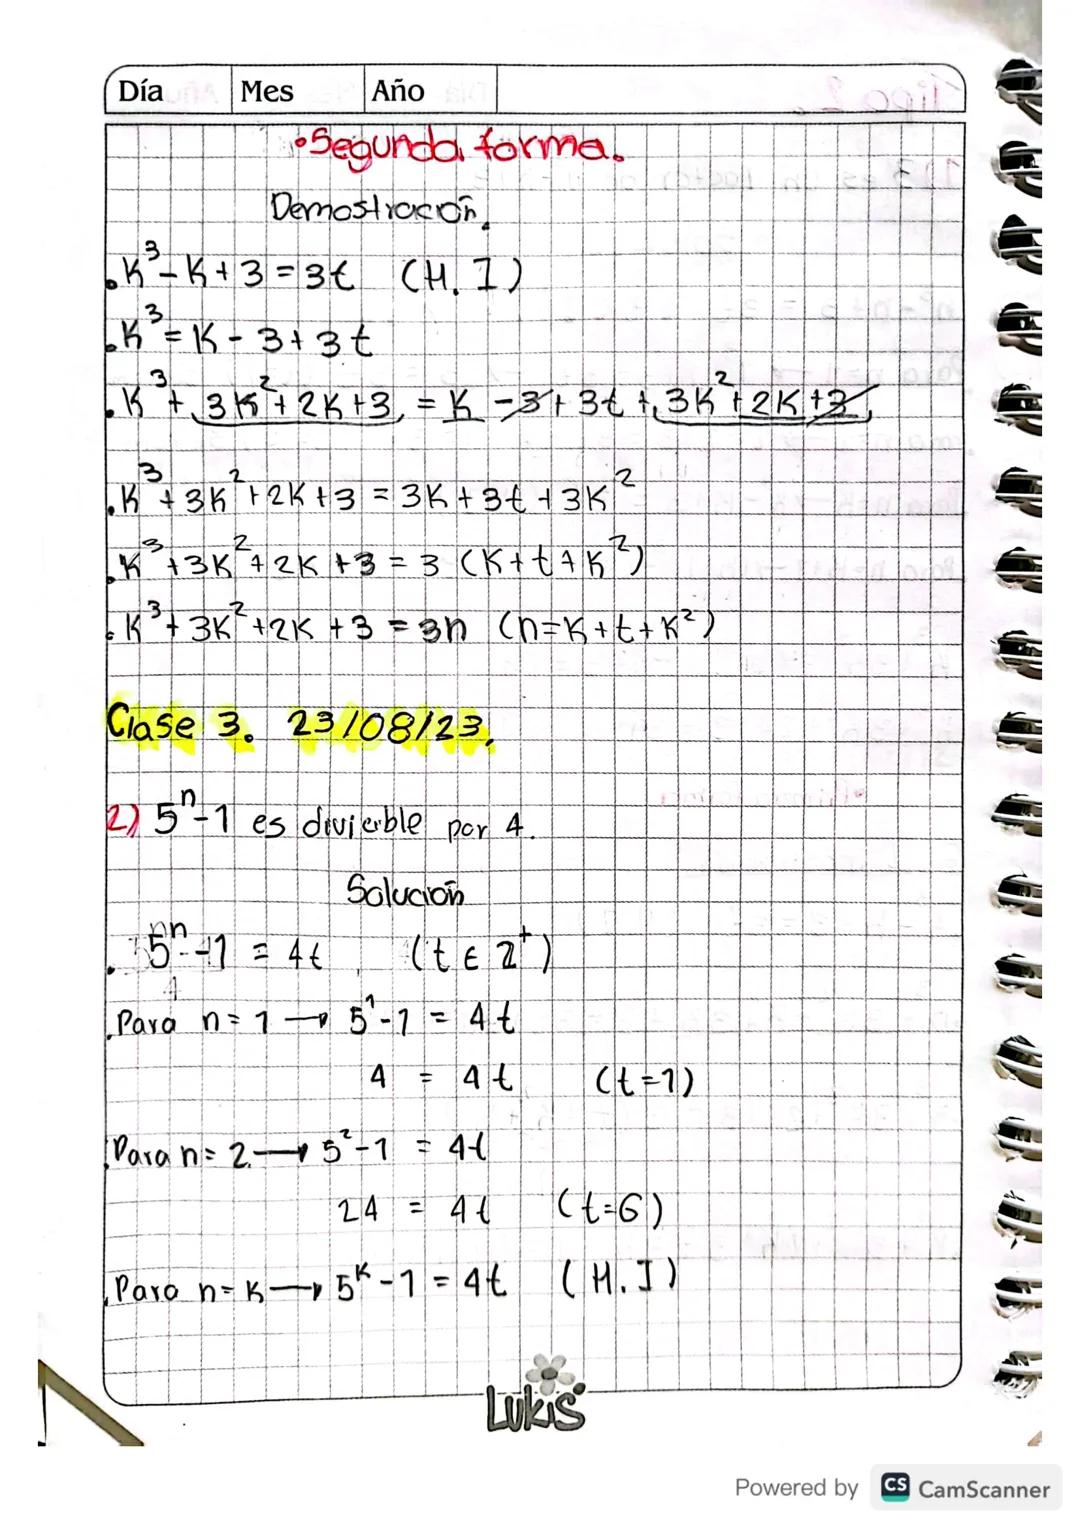 Día Mes Año
•Segunda forma.
Demostración.
•K³-K+3=3t (H.I)
•K³=K-3+3t
•K³+3K²+2K+3=K-3+3t+3K²+2K+3
•K³+3K²+2K+3=3K+3t+3K²
•K³+3K²+2K+3=3(K+t+K²)
•K³+3K²+2K+3=3n (n=K+t+K²)
Clase 3. 23/08/23.
2) 5ⁿ-1 es divisible por 4.
Solución
•5ⁿ-1=4t (t∈Z⁺)
•Para n=1→5¹-1=4t
4=4t (t=1)
•Para n=2→5²-1=4t
24=4t (t=6)
•Para n=K→5ᴷ-1=4t (H.I)
Lukis
Powered by CS CamScanner